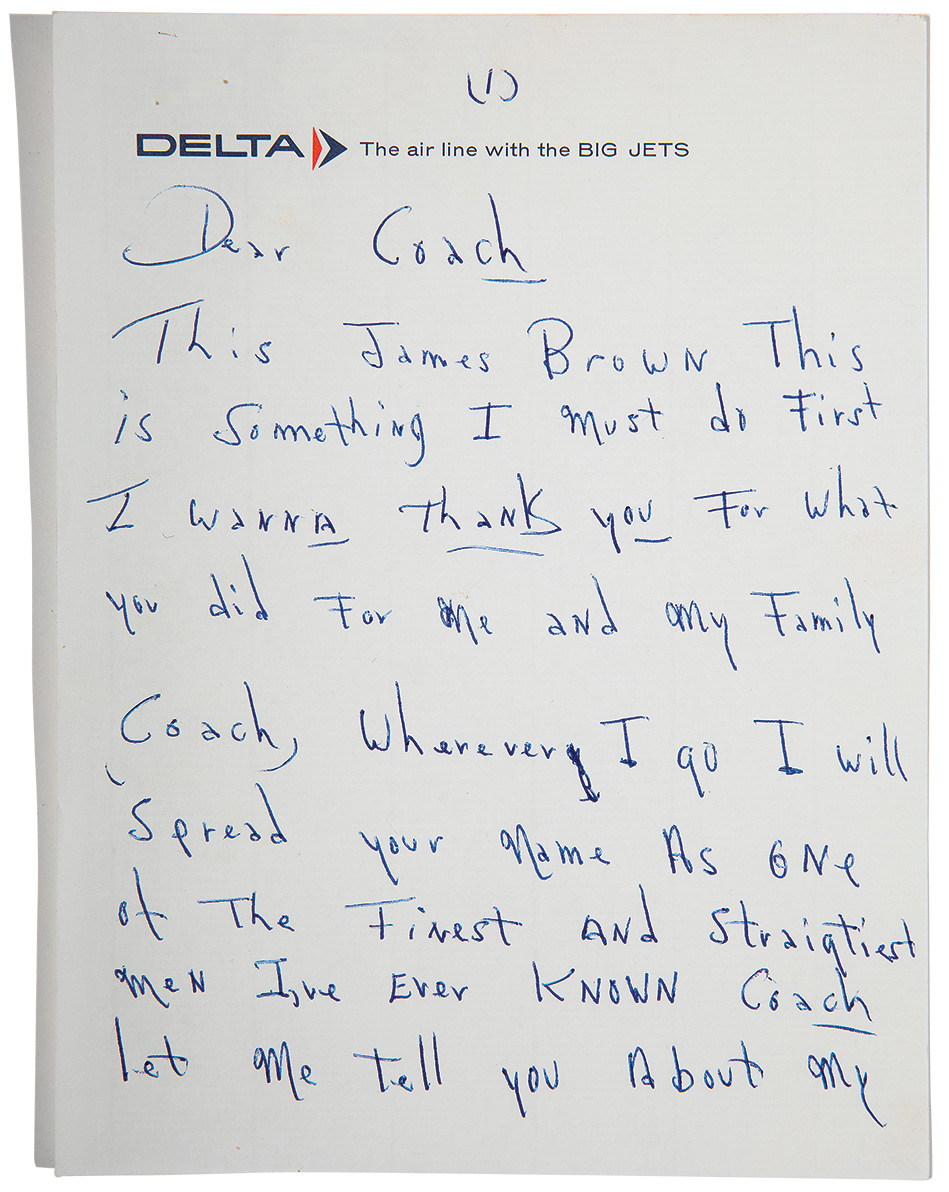 (1)
DELTA The air line with the BIG JETS
Dear Coach
This James Brown This
is Something I must do First
I wanna thank you For what
you did For me and my Family
Coach, Wherevery I go I will
Spread your Name As one
of The Finest And Straigtiest
men I,ve Ever KNOWN Coach
let me tell you About my